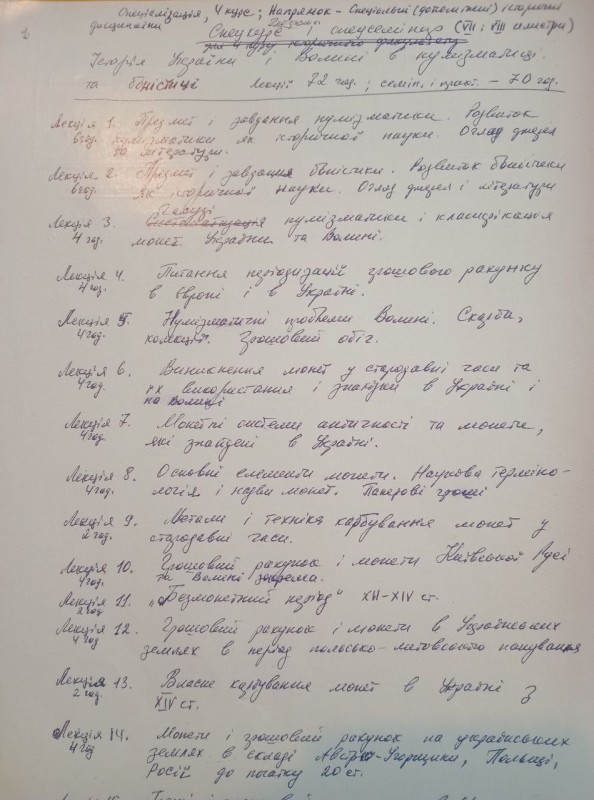 1
Спеціалізація, 4 курс; Напрямок - Спеціальні (допоміжні) історичні
дисципліни
Спецкурс і спецсемінар (VII і VIII семестри)
для 4 курсу історичного факультету
Історія України і Волині в нумізматиці
та боністиці Лекції 72 год.; семін. і практ. - 70 год.
Лекція 1. Предмет і завдання нумізматики. Розвиток
6 год. нумізматики як історичної науки. Огляд джерел
та літератури.
Лекція 2. Предмет і завдання боністики. Розвиток боністики
6 год. як історичної науки. Огляд джерел і літератури
Галузі
Лекція 3. Систематизація нумізматики і класифікація
4 год. монет України та Волині.
Лекція 4. Питання періодизації грошового рахунку
4 год. в Європі і в Україні.
Лекція 5. Нумізматичні проблеми Волині. Скарби,
4 год. колекції. Грошовий обіг.
Лекція 6. Виникнення монет у стародавні часи та
4 год. їх використання і знахідки в Україні і
на Волині
Лекція 7. Монетні системи античності та монети,
4 год. які знайдені в Україні.
Лекція 8. Основні елементи монети. Наукова терміно-
4 год. логія і назви монет. Паперові гроші
Лекція 9. Метали і техніка карбування монет у
2 год. стародавні часи.
Лекція 10. Грошовий рахунок і монети Київської Русі
4 год. та Волині зокрема.
Лекція 11. „Безмонетний період" XII-XIV ст.
2 год
Лекція 12. Грошовий рахунок і монети в Українських
4 год землях в період польсько-литовського панування
Лекція 13. Власне карбування монет в Україні з
2 год. XIV ст.
Лекція 14. Монети і грошовий рахунок на українських
4 год землях в складі Австро-Угорщини, Польщі,
Росії до початку 20 ст.